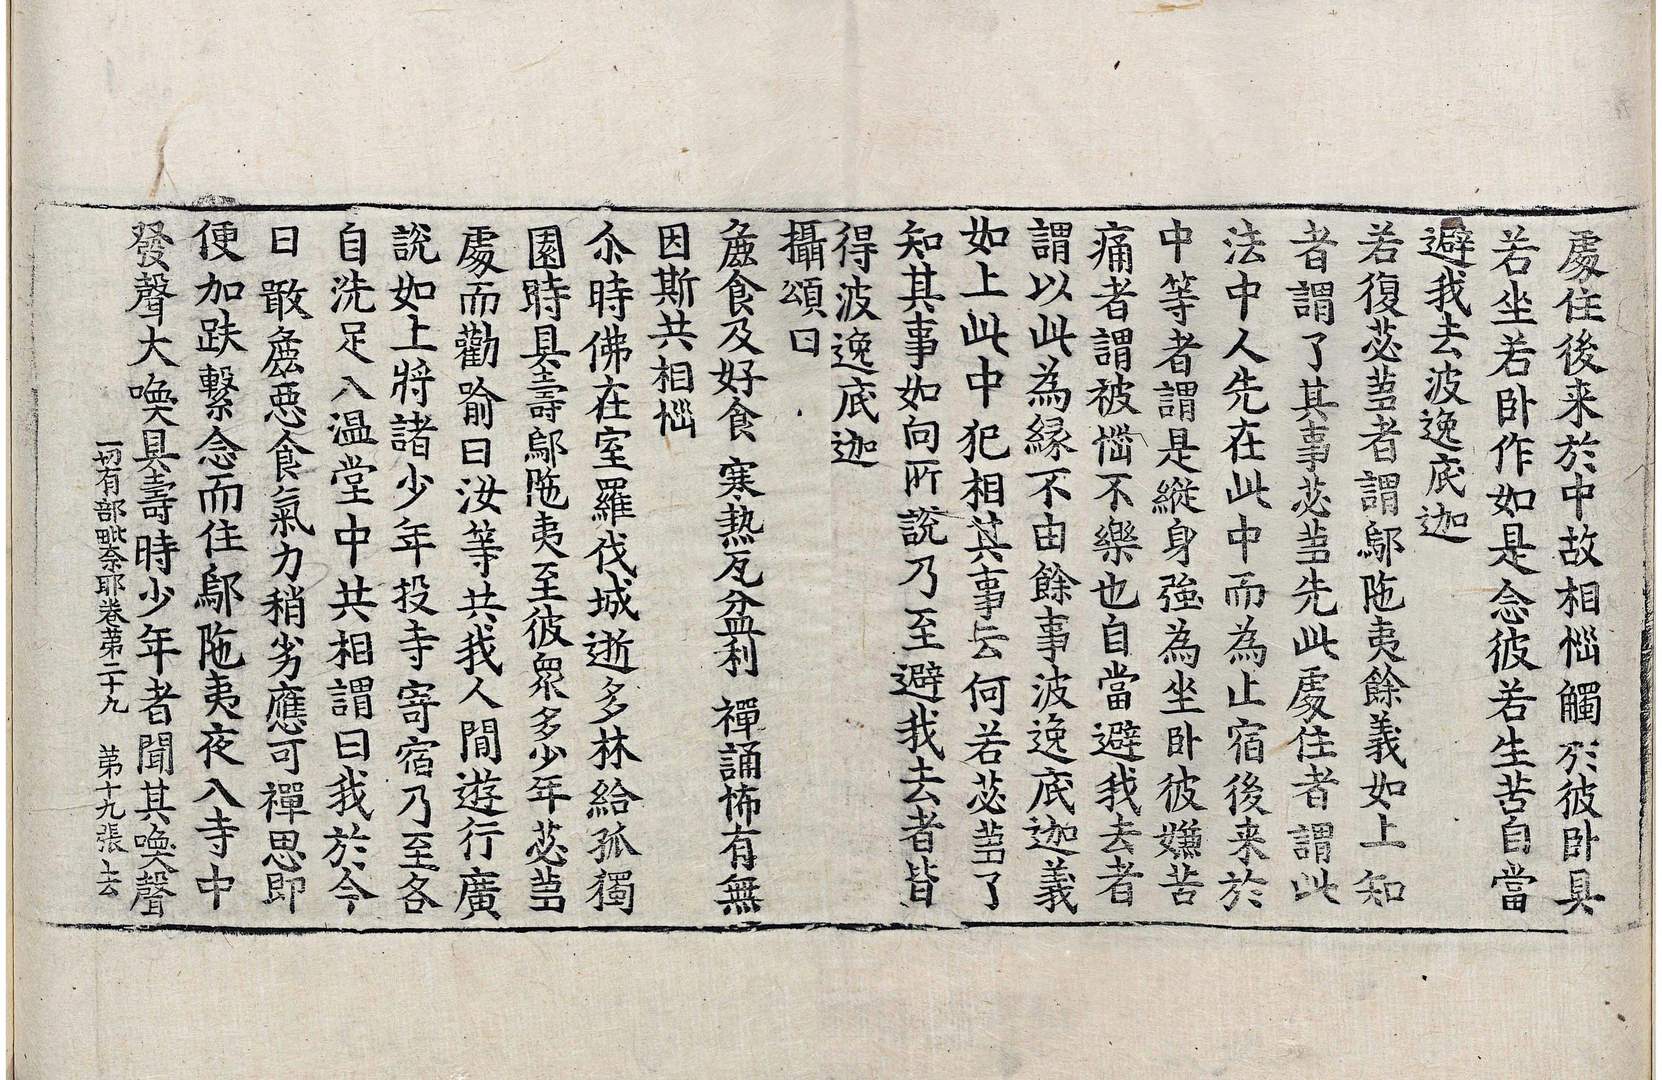 處住後来於中故相惱觸於彼卧具
若坐若卧作如是念彼若生苦自當
避我去波逸底迦
若復苾芻者謂鄔陁夷餘義如上知
者謂了其事苾芻先此處住者謂此
法中人先在此中而為止宿後来於
中等者謂是縱身強為坐卧彼嫌苦
痛者謂被惱不樂也自當避我去者
謂以此為緣不由餘事波逸底迦義
如上此中犯相其事云何若苾芻了
知其事如向所說乃至避我去者皆
得波逸底迦
攝頌曰
麁食及好食 寒熱瓦盆利 禪誦怖有無
因斯共相惱
尒時佛在室羅伐城逝多林給孤獨
園時具壽鄔陁夷至彼眾多少年苾芻
處而勸喻曰汝等共我人間遊行廣
說如上將諸少年投寺寄宿乃至各
自洗足入温堂中共相謂曰我於今
日噉麁悪食氣力稍劣應可禪思即
便加趺繫念而住鄔陁夷夜入寺中
發聲大喚具壽時少年者聞其喚聲
一切有部毗奈耶卷第二十九 第十九張 上去